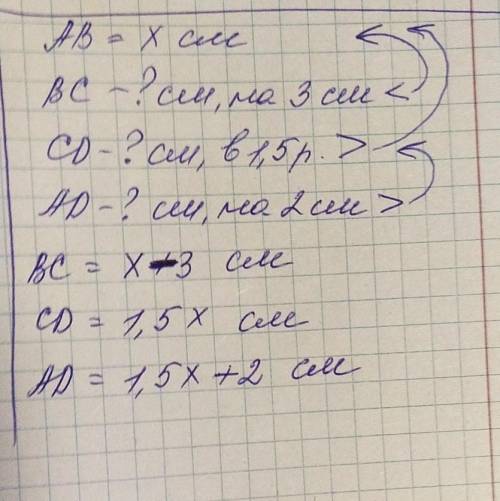 AB = x см
BC - ? см, на 3 см <
CD - ? см, в 1,5 р. >
AD - ? см, на 2 см >
BC = x - 3 см
CD = 1,5x см
AD = 1,5x + 2 см